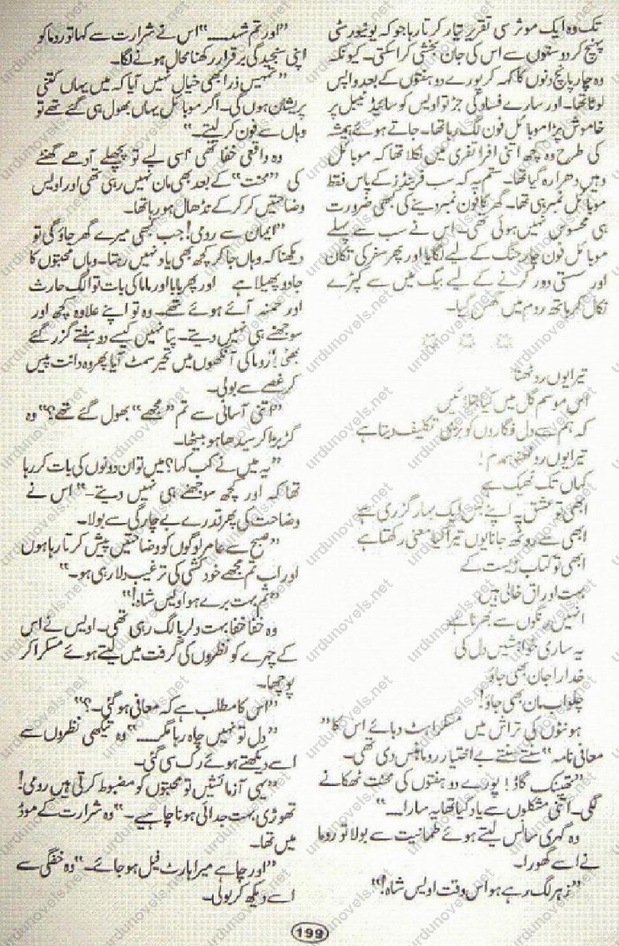 تک وہ ایک موثر سی تقریر تیار کرتا رہا جو کہ یونیورسٹی
پہنچ کر دوستوں سے اس کی جان بخشی کرا سکتی۔ کیونکہ
وہ چار پانچ دنوں کا کہہ کر پورے دو ہفتوں کے بعد واپس
لوٹا تھا۔ اور سارے فساد کی جڑ تو اویس کو سائیڈ ٹیبل پر
خاموش پڑا موبائل فون لگ رہا تھا۔ جاتے ہوئے ہمیشہ
کی طرح وہ کچھ اتنی افراتفری میں نکلا تھا کہ موبائل
وہیں دھرا رہ گیا تھا۔ ستم یہ کہ سب فرینڈز کے پاس فقط
موبائل نمبر ہی تھا۔ گھر کا فون نمبر دینے کی کبھی ضرورت
ہی محسوس نہیں ہوئی تھی۔ اس نے سب سے پہلے
موبائل فون چارجنگ کے لیے لگایا اور پھر سفر کی تکان
اور سستی دور کرنے کے لیے بیگ میں سے کپڑے
نکال کر باتھ روم میں گھس گیا۔
تیرا یوں روٹھنا
اس موسم گل میں کیا بتلائیں
کہ ہم سے دل فگاروں کو بڑی تکلیف دیتا ہے
تیرا یوں روٹھنا ہمدم!
کہاں تک ٹھیک ہے
ابھی تو عشق پہ اپنے بس ایک بہار گزری ہے
ابھی سے روٹھ جانا یوں تیرا کیا معنی رکھتا ہے
ابھی تو کتاب زیست کے
بہت اوراق خالی ہیں
انہیں رنگوں سے بھرنا ہے
یہ ساری خواہشیں دل کی
خدارا جان بھی جاؤ
چلو اب مان بھی جاؤ!
ہونٹوں کی تراش میں مسکراہٹ دبائے اس کا "
معافی نامہ" سنتے سنتے بے اختیار روما ہنس دی تھی۔
"تھینک گاڈ! پورے دو ہفتوں کی محنت ٹھکانے
لگی۔ اتنی مشکلوں سے یاد کیا تھا یہ سارا....."
وہ گہری سانس لیتے ہوئے طمانیت سے بولا تو روما
نے اسے گھورا۔
"زہر لگ رہے ہو اس وقت اویس شاہ!"
"اور تم شہد....." اس نے شرارت سے کہا تو روما کو
اپنی سنجیدگی برقرار رکھنا محال ہونے لگا۔
"تمہیں ذرا بھی خیال نہیں آیا کہ میں یہاں کتنی
پریشان ہوں گی۔ اگر موبائل یہاں بھول ہی گئے تھے تو
وہاں سے فون کر لیتے۔"
وہ واقعی خفا تھی اسی لیے تو پچھلے آدھے گھنٹے
کی "محنت" کے بعد بھی مان نہیں رہی تھی اور اویس
وضاحتیں کر کر کے نڈھال ہو رہا تھا۔
"ایمان سے رومی! جب کبھی میرے گھر جاؤ گی تو
دیکھنا کہ وہاں جا کر کچھ بھی یاد نہیں رہتا۔ وہاں محبتوں کا
جادو پھیلا ہے اور پھر پاپا اور ماما کی بات تو الگ حارث
اور آئے ہوئے تھے۔ وہ تو اپنے علاوہ کچھ اور
سوچنے ہی نہیں دیتے۔ پتا نہیں کیسے دو ہفتے گزر گئے
بھئی!" روما کی آنکھوں میں تحیر سمٹ آیا پھر وہ دانت پیس
کر غصے سے بولی۔
"اتنی آسانی سے تم "مجھے" بھول گئے تھے؟" وہ
گڑبڑا کر سیدھا ہو بیٹھا۔
"یہ میں نے کب کہا؟ میں تو ان دونوں کی بات کر رہا
تھا کہ اور کچھ سوچنے ہی نہیں دیتے۔" اس نے
وضاحت کی پھر قدرے بے چارگی سے بولا۔
"صبح سے عامر لوگوں کو وضاحتیں پیش کرتا رہا ہوں
اور اب تم مجھے خودکشی کی ترغیب دلا رہی ہو۔"
"تم بہت برے ہو اویس شاہ!"
وہ خفا خفا بہت دلربا لگ رہی تھی۔ اویس نے اس
کے چہرے کو نظروں کی گرفت میں لیتے ہوئے مسکرا کر
پوچھا۔
"اس کا مطلب ہے کہ معافی ہو گئی۔؟"
"دل تو نہیں چاہ رہا مگر....." وہ تیکھی نظروں سے
اسے دیکھتے ہوئے رک سی گئی۔
"یہی آزمائشیں تو محبتوں کو مضبوط کرتی ہیں رومی!
تھوڑی بہت جدائی ہونا چاہیے۔" وہ شرارت کے موڈ
میں تھا۔
"اور چاہے میرا ہارٹ فیل ہو جائے۔" وہ خفگی سے
اسے دیکھ کر بولی۔
199
urdunovels.net